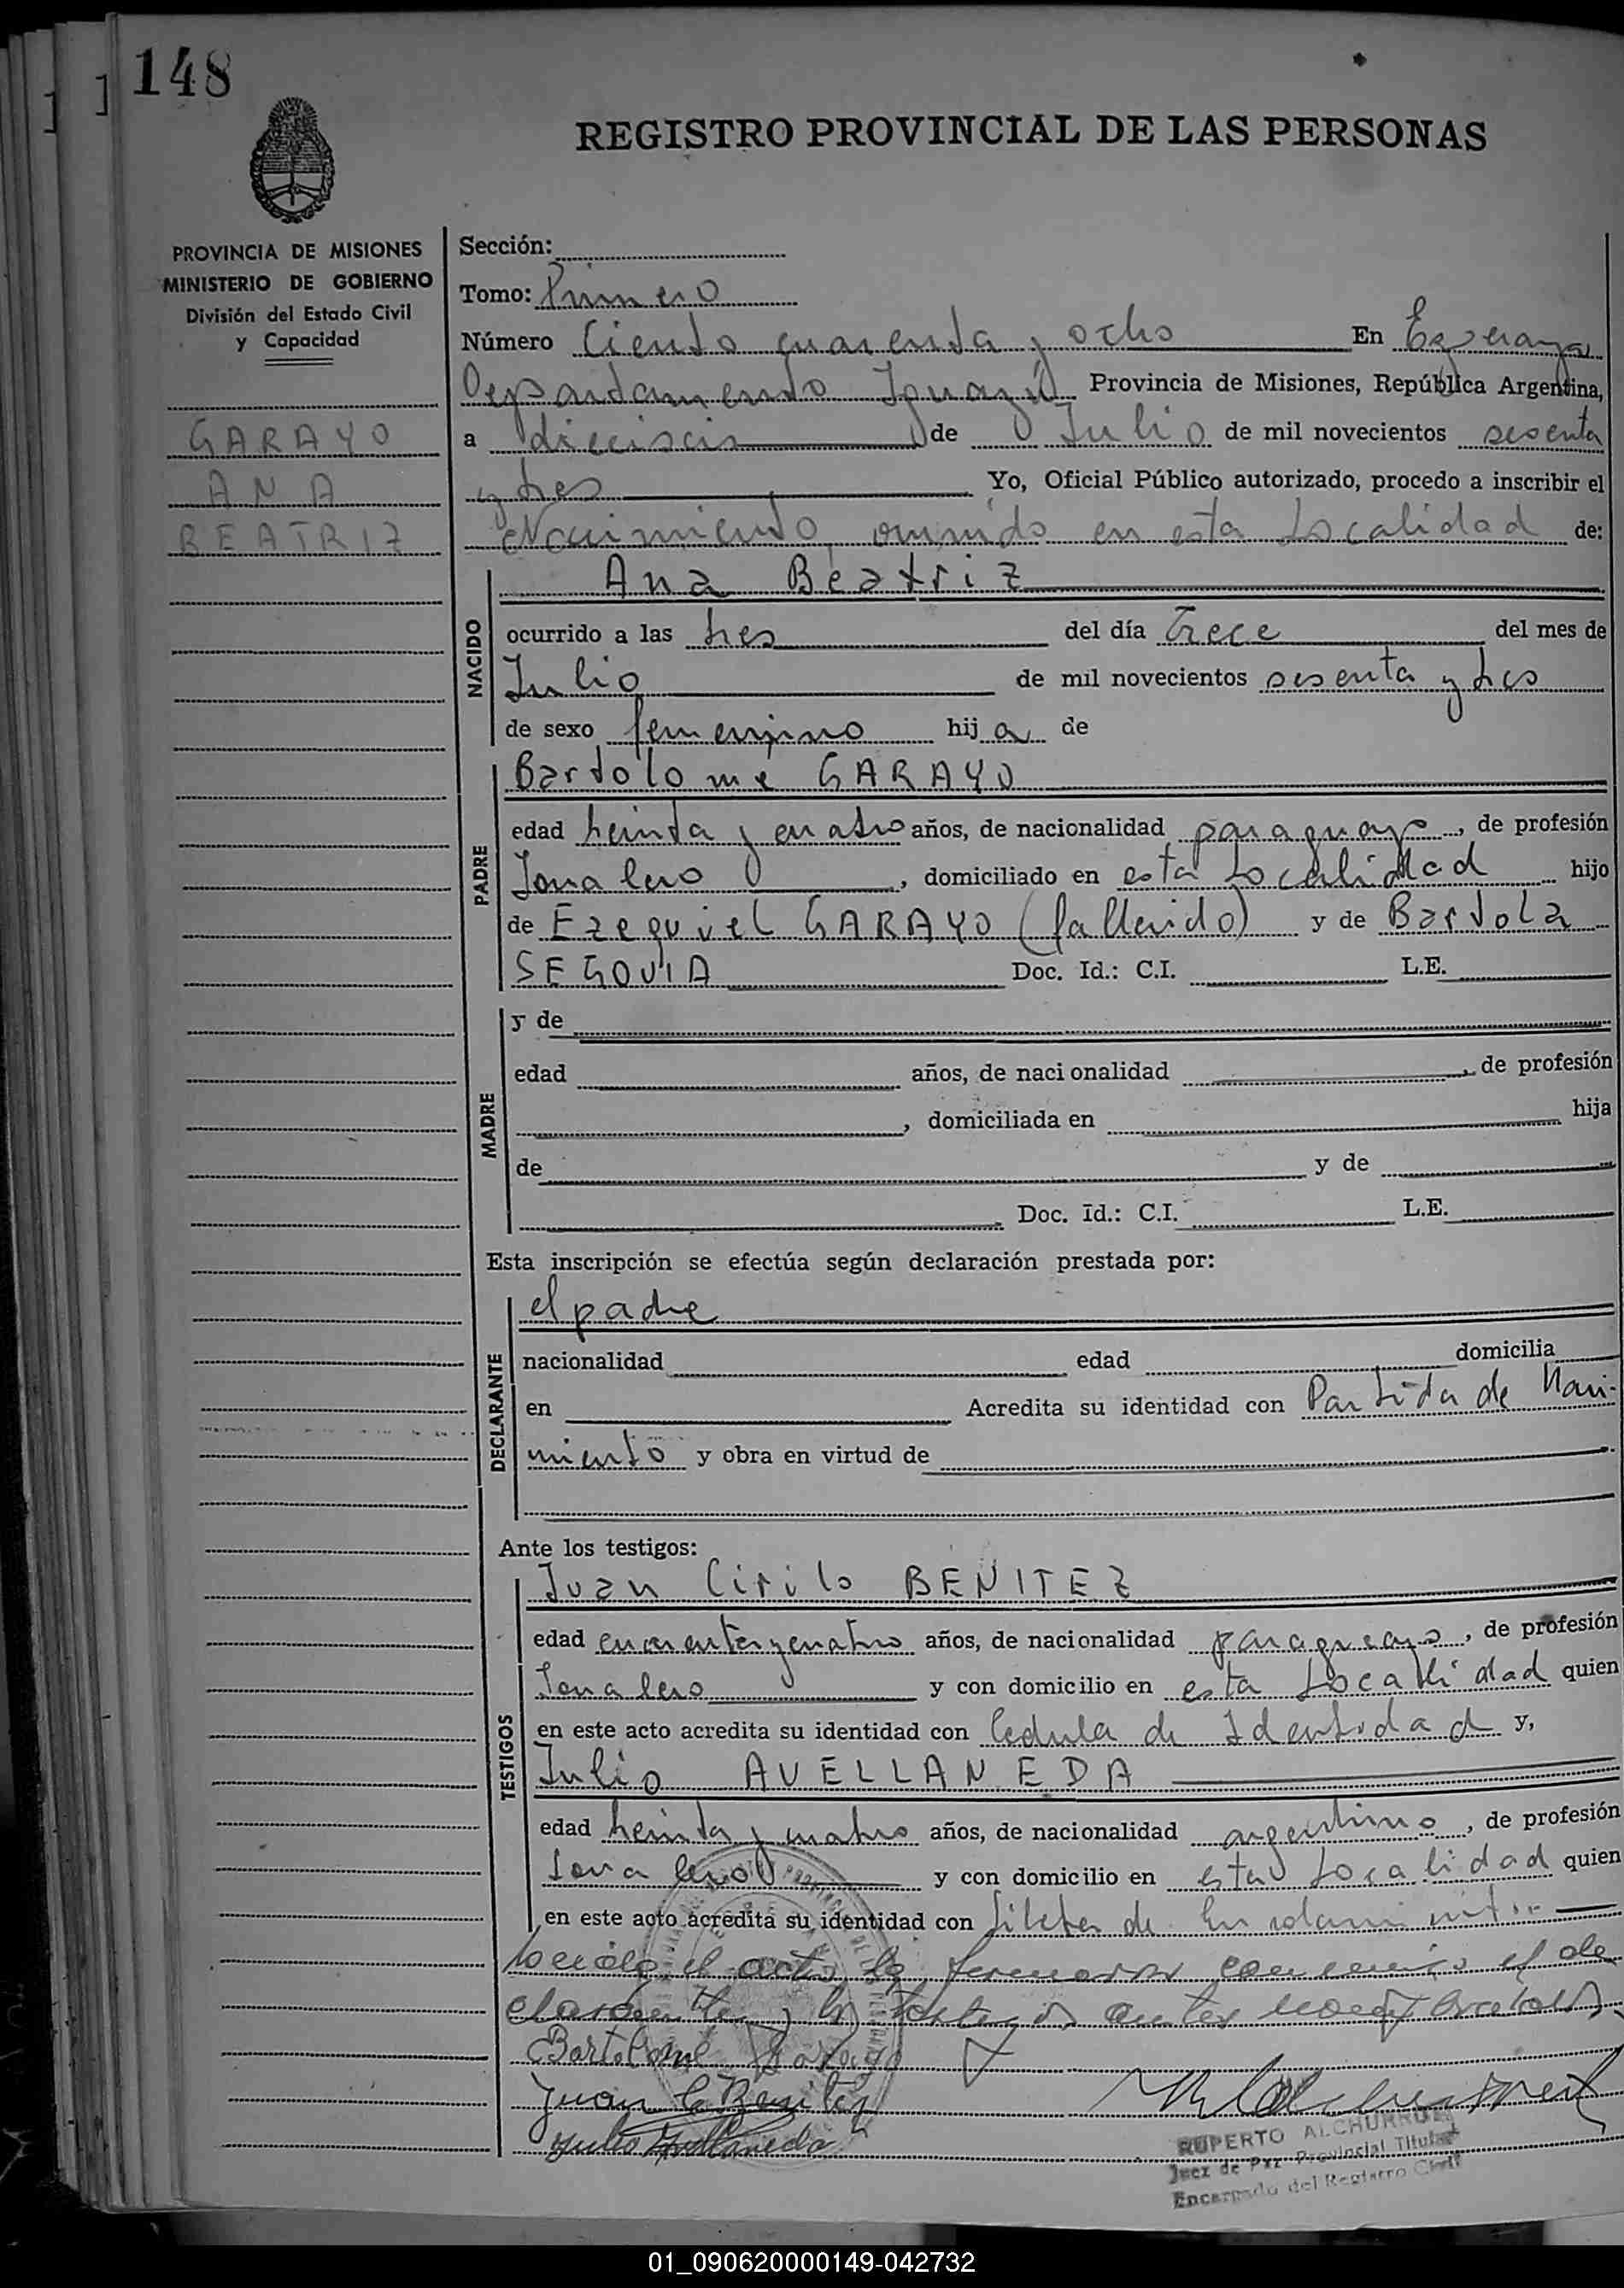 148
REGISTRO PROVINCIAL DE LAS PERSONAS
PROVINCIA DE MISIONES
MINISTERIO DE GOBIERNO
División del Estado Civil
y Capacidad
GARAYO
ANA
BEATRIZ
Sección:
Tomo: Primero
Número Ciento cuarenta y ocho En Esperanza
Departamento Iguazú Provincia de Misiones, República Argentina,
a dieciseis de Julio de mil novecientos sesenta
y tres Yo, Oficial Público autorizado, procedo a inscribir el
Nacimiento, ocurrido en esta Localidad de:
NACIDO
Ana Beatriz
ocurrido a las tres del día Trece del mes de
Julio de mil novecientos sesenta y tres
de sexo femenino hija de
PADRE
Bartolome GARAYO
edad treinta y cuatro años, de nacionalidad paraguayo, de profesión
Jornalero, domiciliado en esta Localidad hijo
de Ezequiel GARAYO (fallecido) y de Bartola
SEGOVIA Doc. Id.: C.I. L.E.
MADRE
y de
edad años, de naci onalidad , de profesión
, domiciliada en hija
de y de
Doc. Id.: C.I. L.E.
Esta inscripción se efectúa según declaración prestada por:
DECLARANTE
el padre
nacionalidad edad domicilia
en Acredita su identidad con Partida de Naci-
miento y obra en virtud de
Ante los testigos:
TESTIGOS
Juan Cirilo BENITEZ
edad cuarenta y cuatro años, de nacionalidad paraguayo, de profesión
Jornalero y con domicilio en esta Localidad quien
en este acto acredita su identidad con Cedula de Identidad y,
Julio AVELLANEDA
edad treinta y cuatro años, de nacionalidad argentino, de profesión
Jornalero y con domicilio en esta Localidad quien
en este acto acredita su identidad con Libreta de Enrolamiento
el acta, la firmaron conmigo el de
clarante y los testigos antes
Bartolomé Garayo
Juan C Benitez
Julio Avellaneda
RUPERTO ALCHURRUT
Juez de Paz Provincial Titular
Encargado del Registro Civil
01_090620000149-042732